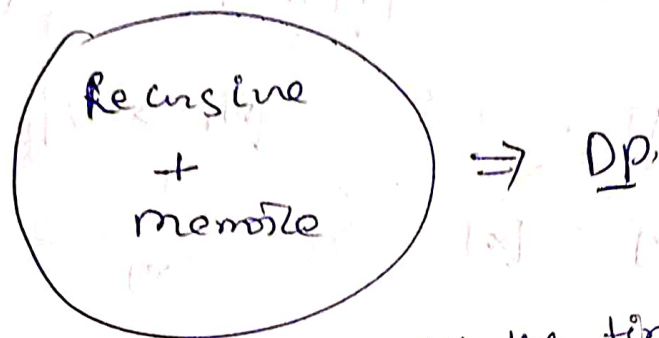 Recursive
+
memoize
⇒ DP.